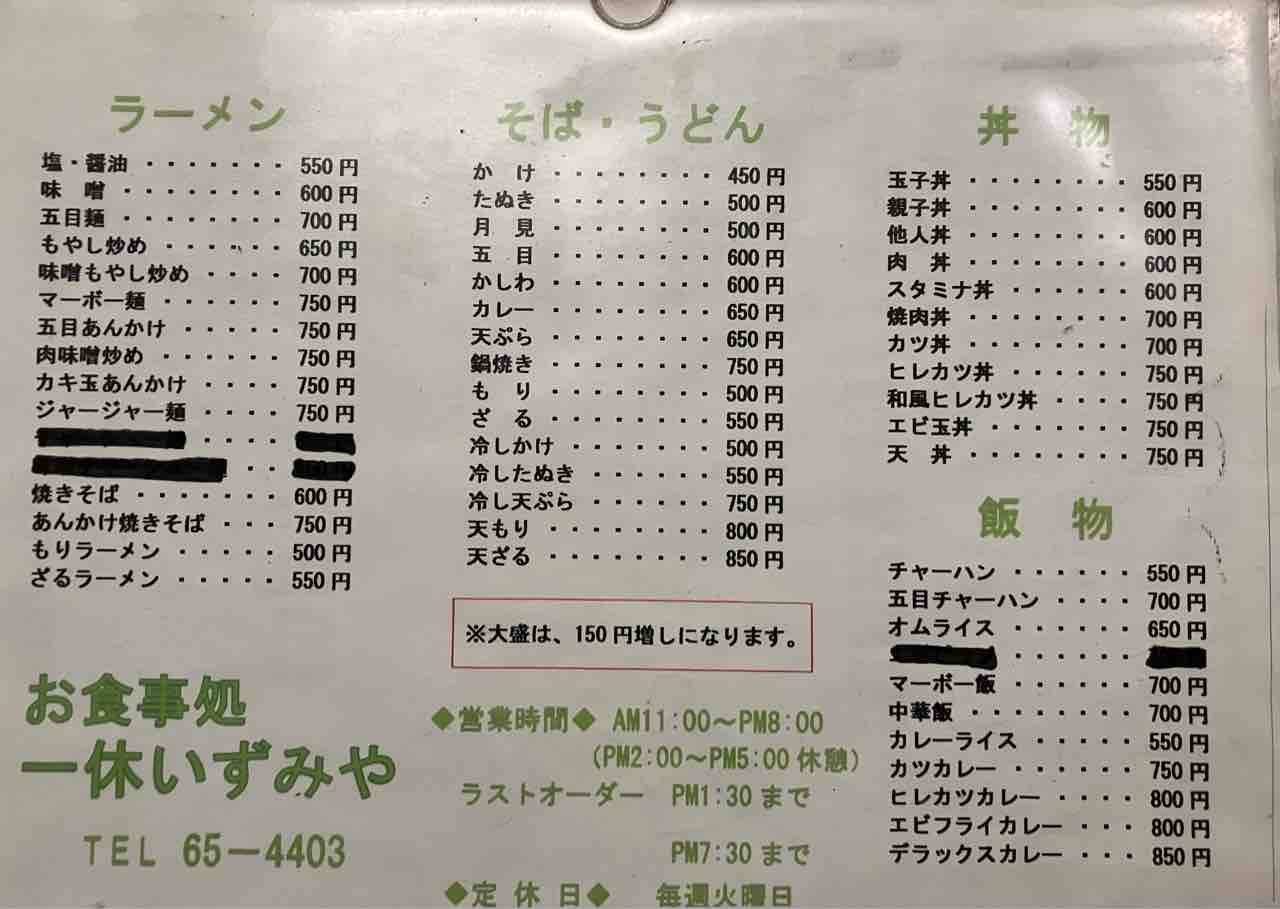 ラーメン
塩・醤油 ・・・・・・・ 550円
味　噌 ・・・・・・・・ 600円
五目麺 ・・・・・・・・ 700円
もやし炒め ・・・・・・ 650円
味噌もやし炒め ・・・・ 700円
マーボー麺 ・・・・・・ 750円
五目あんかけ ・・・・・ 750円
肉味噌炒め ・・・・・・ 750円
カキ玉あんかけ ・・・・ 750円
ジャージャー麺 ・・・・ 750円
焼きそば ・・・・・・・ 600円
あんかけ焼きそば ・・・ 750円
もりラーメン ・・・・・ 500円
ざるラーメン ・・・・・ 550円
お食事処
一休いずみや
TEL 65－4403
そば・うどん
か　け ・・・・・・・・ 450円
たぬき ・・・・・・・・ 500円
月　見 ・・・・・・・・ 500円
五　目 ・・・・・・・・ 600円
かしわ ・・・・・・・・ 600円
カレー ・・・・・・・・ 650円
天ぷら ・・・・・・・・ 650円
鍋焼き ・・・・・・・・ 750円
も　り ・・・・・・・・ 500円
ざ　る ・・・・・・・・ 550円
冷しかけ ・・・・・・・ 500円
冷したぬき ・・・・・・ 550円
冷し天ぷら ・・・・・・ 750円
天もり ・・・・・・・・ 800円
天ざる ・・・・・・・・ 850円
※大盛は、150円増しになります。
◆営業時間◆ AM11:00～PM8:00
(PM2:00～PM5:00休憩)
ラストオーダー PM1:30まで
PM7:30まで
◆定 休 日◆ 毎週火曜日
丼　物
玉子丼 ・・・・・・・・ 550円
親子丼 ・・・・・・・・ 600円
他人丼 ・・・・・・・・ 600円
肉　丼 ・・・・・・・・ 600円
スタミナ丼 ・・・・・・ 600円
焼肉丼 ・・・・・・・・ 700円
カツ丼 ・・・・・・・・ 700円
ヒレカツ丼 ・・・・・・ 750円
和風ヒレカツ丼 ・・・・ 750円
エビ玉丼 ・・・・・・・ 750円
天　丼 ・・・・・・・・ 750円
飯　物
チャーハン ・・・・・・ 550円
五目チャーハン ・・・・ 700円
オムライス ・・・・・・ 650円
マーボー飯 ・・・・・・ 700円
中華飯 ・・・・・・・・ 700円
カレーライス ・・・・・ 550円
カツカレー ・・・・・・ 750円
ヒレカツカレー ・・・・ 800円
エビフライカレー ・・・ 800円
デラックスカレー ・・・ 850円